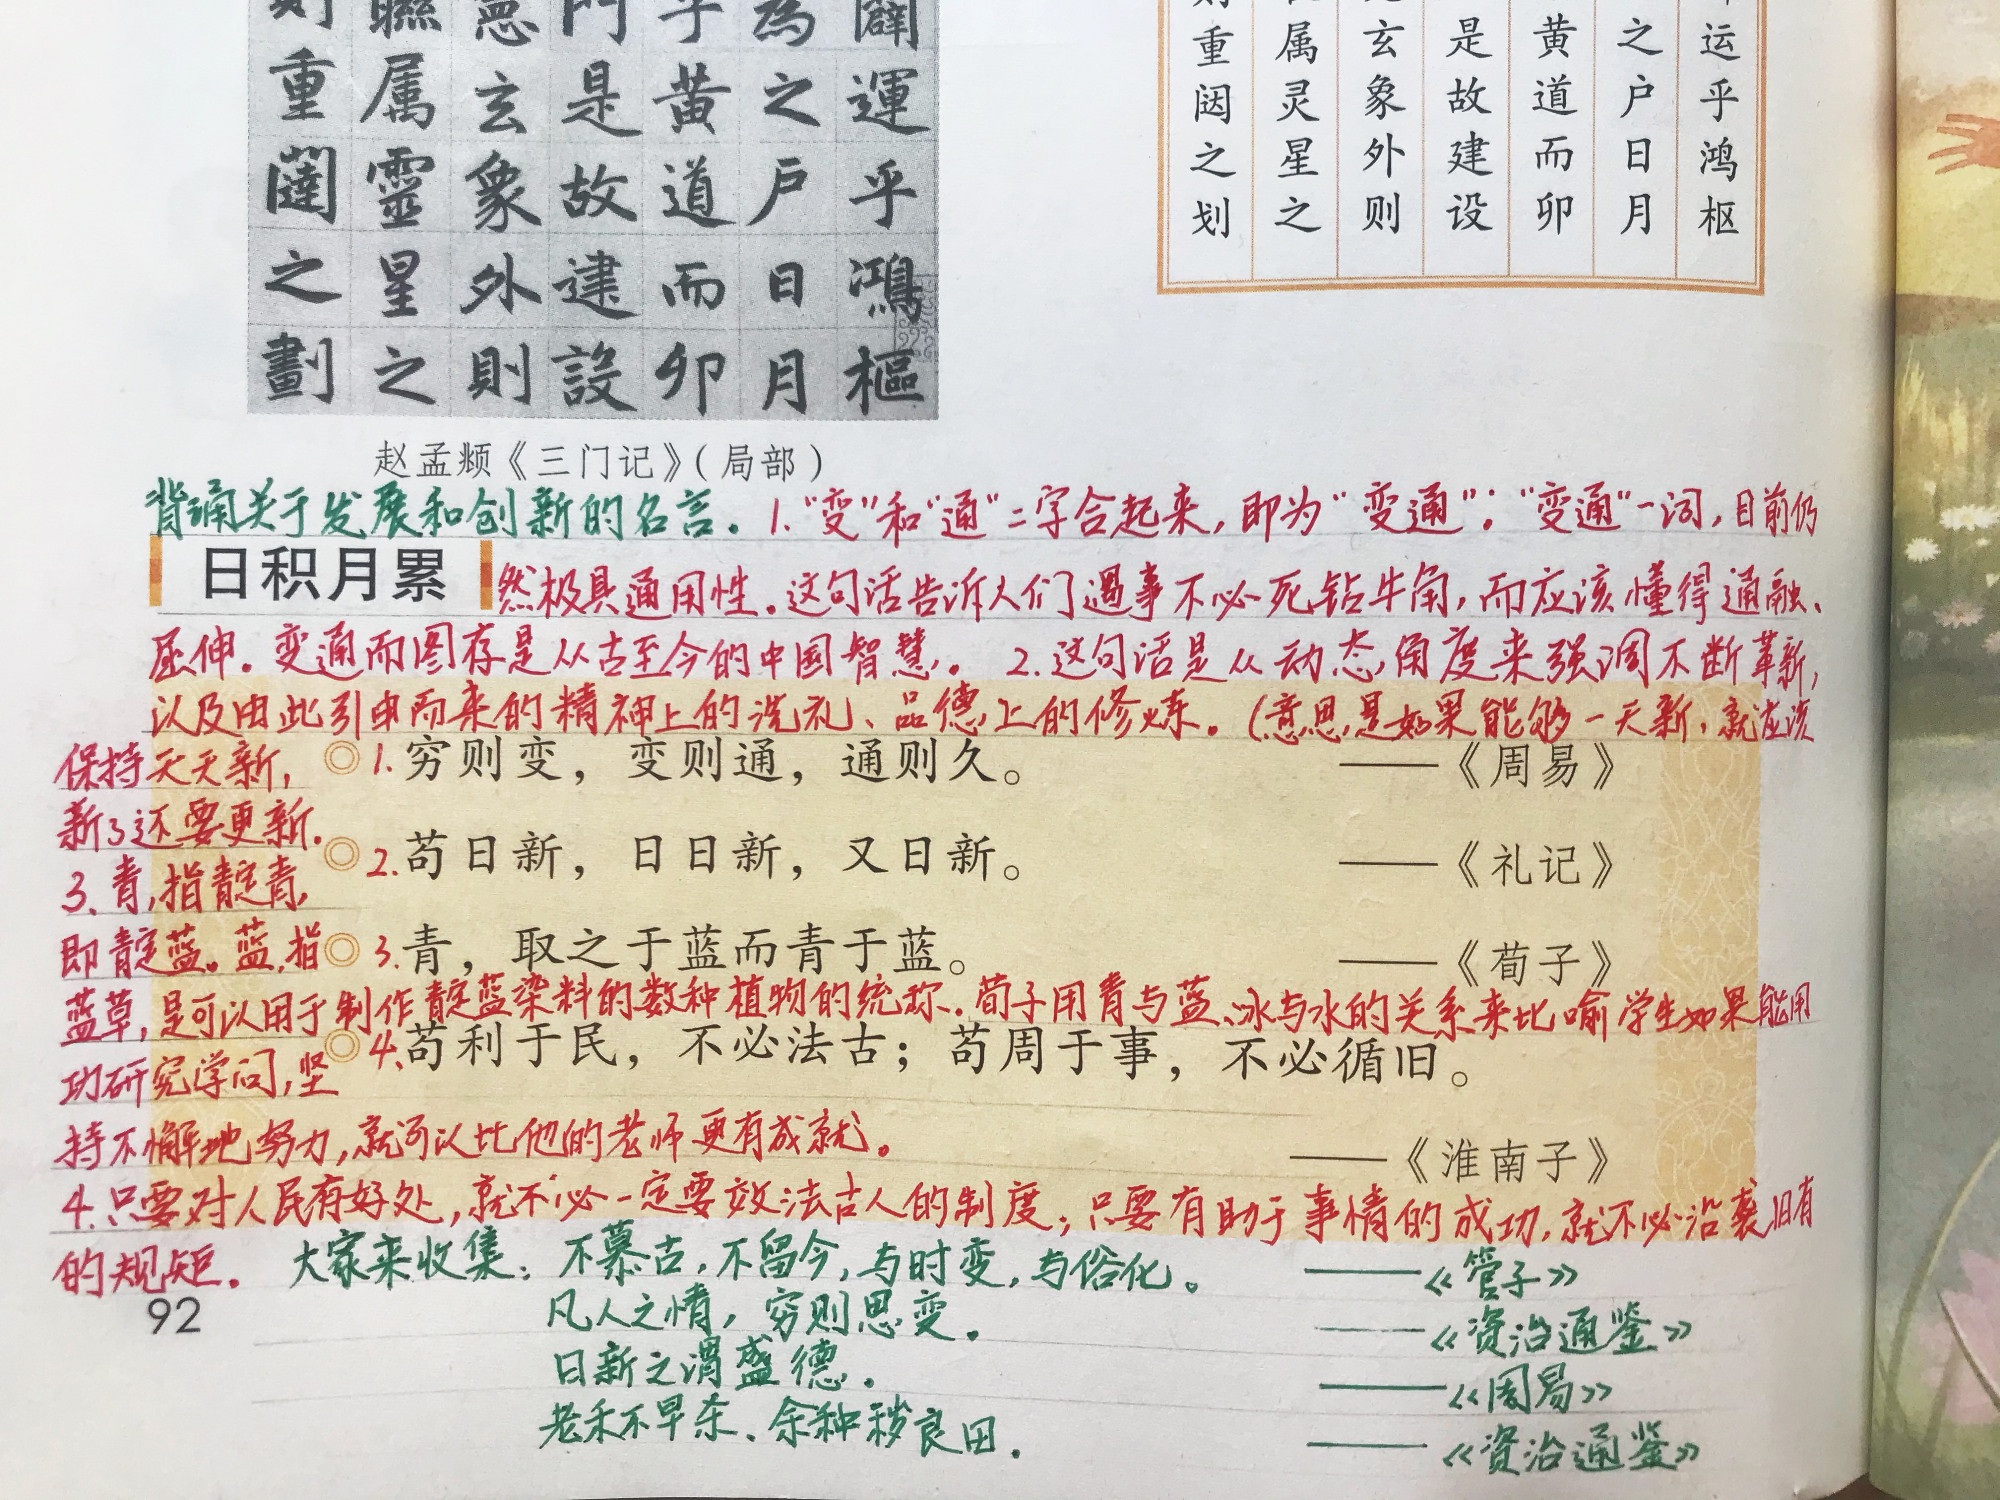 则聯憲门乎為闢
重属玄是黄之運
闥靈象故道户乎
之星外建而日鴻
劃之則設卯月樞
运乎鸿枢
之户日月
黄道而卯
是故建设
玄象外则
属灵星之
则重闼之划
赵孟頫《三门记》(局部)
背诵关于发展和创新的名言。1.“变”和“通”二字合起来,即为“变通”;“变通”一词,目前仍
日积月累
然极具通用性。这句话告诉人们遇事不必死钻牛角,而应该懂得通融、
屈伸。变通而图存是从古至今的中国智慧。 2.这句话是从动态角度来强调不断革新,
以及由此引申而来的精神上的洗礼、品德上的修炼。(意思是如果能够一天新,就应该
保持天天新,
◎1.穷则变,变则通,通则久。 ——《周易》
新了还要更新.
◎2.苟日新,日日新,又日新。 ——《礼记》
3、青,指靛青,
即靛蓝。蓝,指
◎3.青,取之于蓝而青于蓝。 ——《荀子》
蓝草,是可以用于制作靛蓝染料的数种植物的统称.荀子用青与蓝、冰与水的关系来比喻学生如果能用
◎4.苟利于民,不必法古;苟周于事,不必循旧。
功研究学问,坚
持不懈地努力,就可以比他的老师更有成就。
——《淮南子》
4.只要对人民有好处,就不必一定要效法古人的制度;只要有助于事情的成功,就不必沿袭旧有
的规矩。 大家来收集:不慕古,不留今,与时变,与俗化。 ——《管子》
92
凡人之情,穷则思变。 ——《资治通鉴》
日新之谓盛德. ——《周易》
老禾不早杀、余种秽良田. ——《资治通鉴》